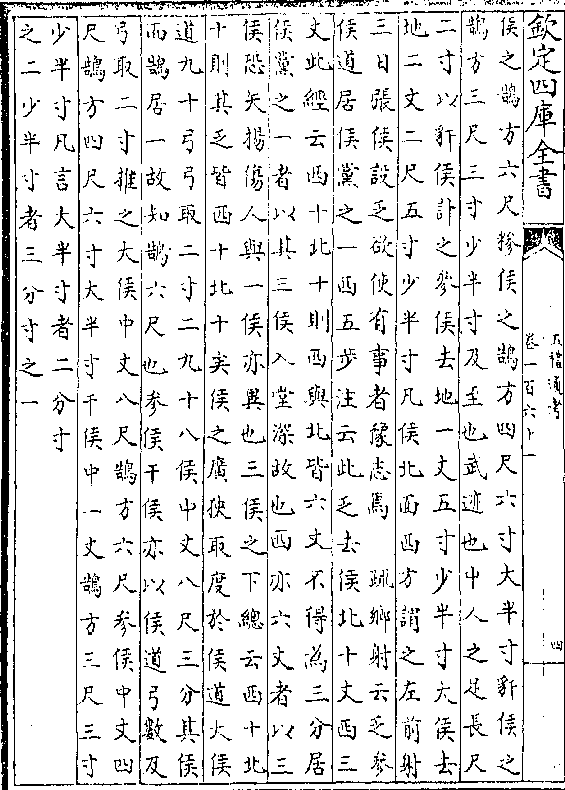 欽定四庫全書
五禮通考
卷一百六十一
四
侯之鵠方六尺糝侯之鵠方四尺六寸大半寸豻侯之
鵠方三尺三寸少半寸及至也武迹也中人之足長尺
二寸以豻侯計之糝侯去地一丈五寸少半寸大侯去
地二丈二尺五寸少半寸凡侯北面西方謂之左前射
三日張侯設乏欲使有事者豫志焉 疏鄉射云乏參
侯道居侯黨之一西五步注云此乏去侯北十丈西三
丈此經云西十北十則西與北皆六丈不得為三分居
侯黨之一者以其三侯入堂深故也西亦六丈者以三
侯恐矢揚傷人與一侯亦異也三侯之下總云西十北
十則其乏皆西十北十矣侯之廣狹取度於侯道大侯
道九十弓弓取二寸二九十八侯中丈八尺三分其侯
而鵠居一故知鵠六尺也參侯干侯亦以侯道弓數及
弓取二寸推之大侯中丈八尺鵠方六尺參侯中丈四
尺鵠方四尺六寸大半寸干侯中一丈鵠方三尺三寸
少半寸凡言大半寸者二分寸
之二少半寸者三分寸之一